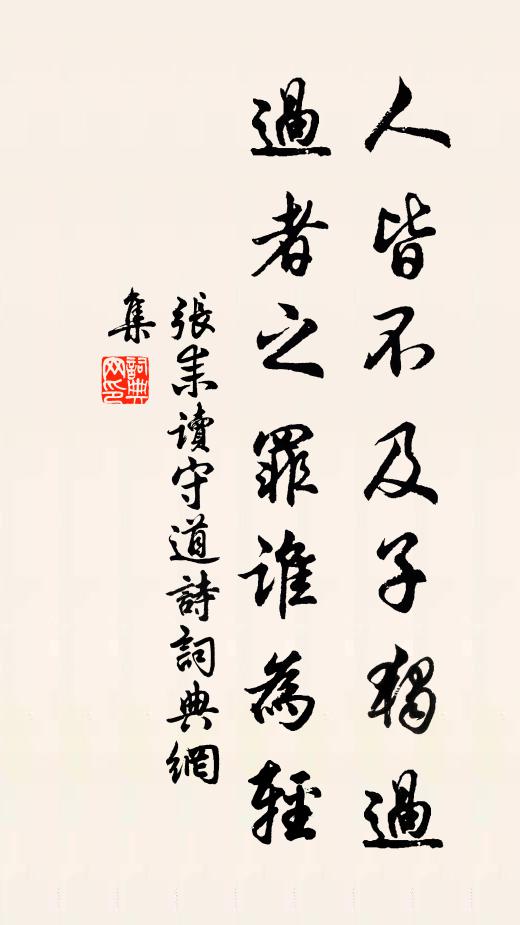 人皆不及子獨過
過者之罪誰為輕
張耒讀守道詩詞典網
集
詞典網印